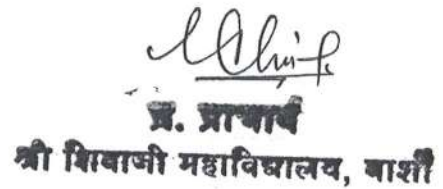 प्र. प्राचार्य
श्री शिवाजी महाविद्यालय, बार्शी